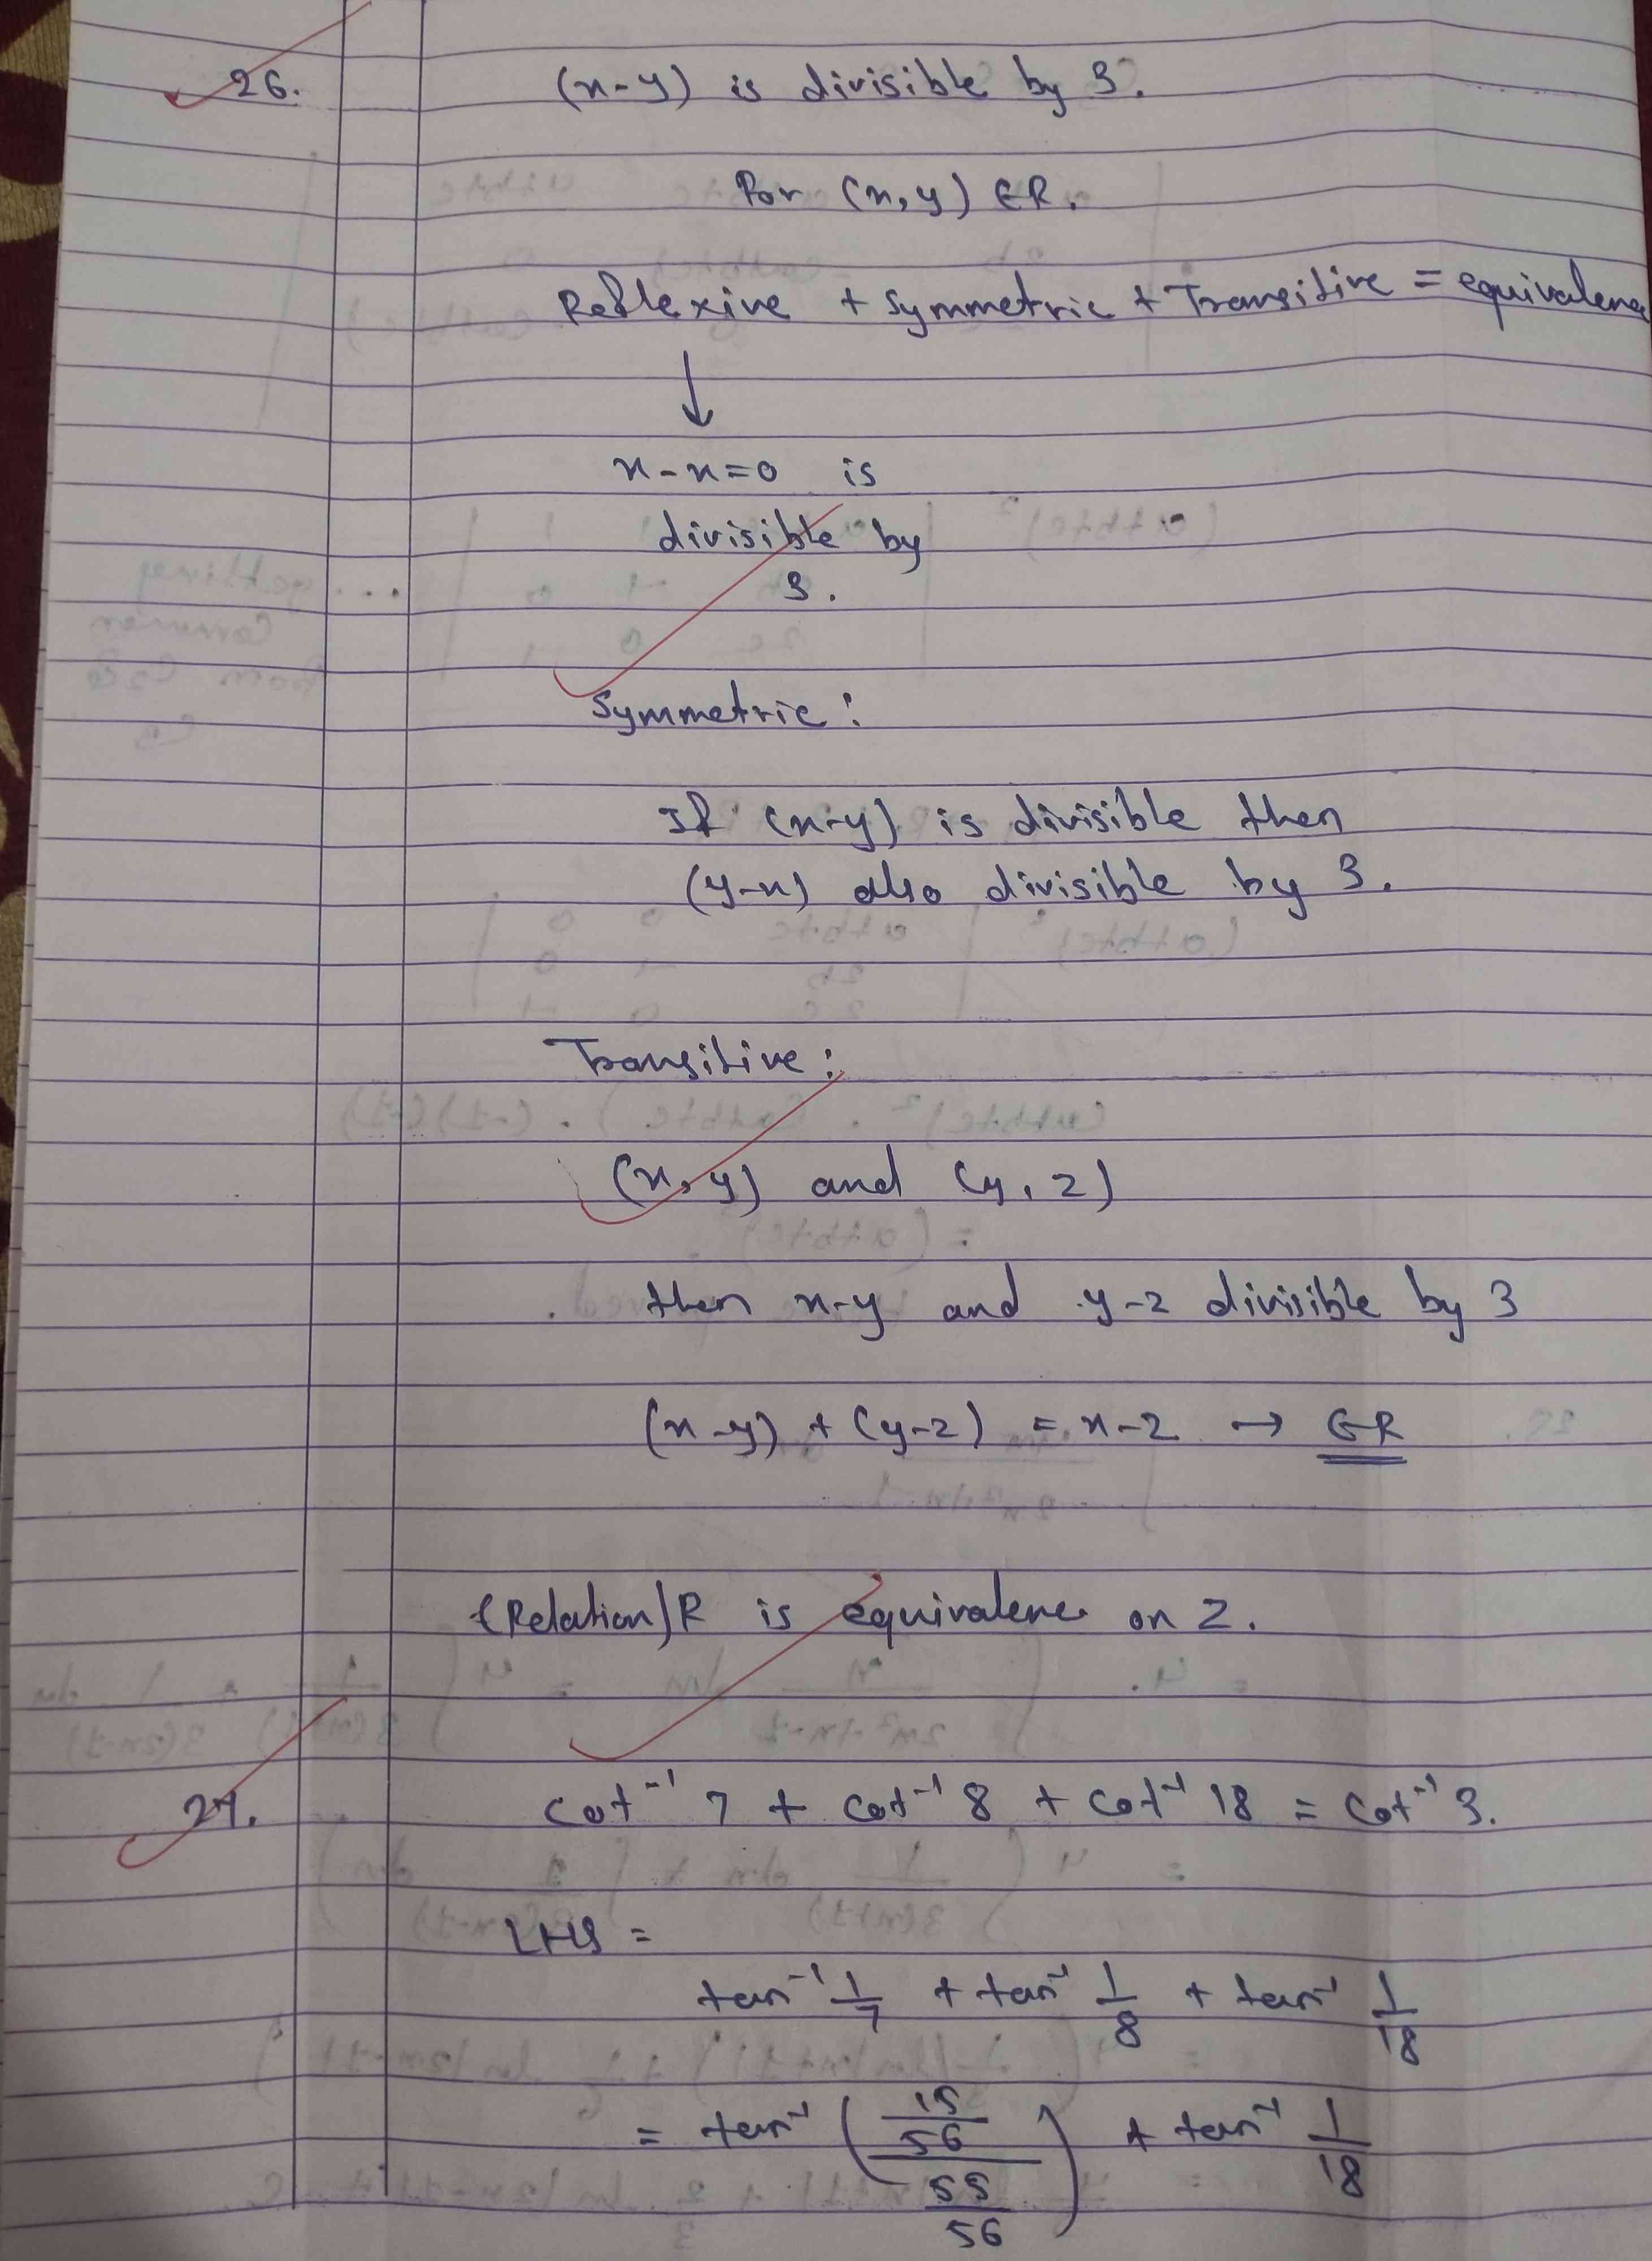 26. (x-y) is divisible by 3.
For (x, y) ∈R.
Reflexive + Symmetric + Transitive = equivalence
↓
x-x=0 is
divisible by
3.
Symmetric:
If (x-y) is divisible then
(y-x) also divisible by 3.
Transitive:
(x, y) and (y, z)
then x-y and y-z divisible by 3
(x-y) + (y-z) = x-z → ∈R
(Relation) R is equivalence on Z.
27. cot⁻¹ 7 + cot⁻¹ 8 + cot⁻¹ 18 = cot⁻¹ 3.
LHS =
tan⁻¹ 1/7 + tan⁻¹ 1/8 + tan⁻¹ 1/18
= tan⁻¹ ( (15/56) / (55/56) ) + tan⁻¹ 1/18